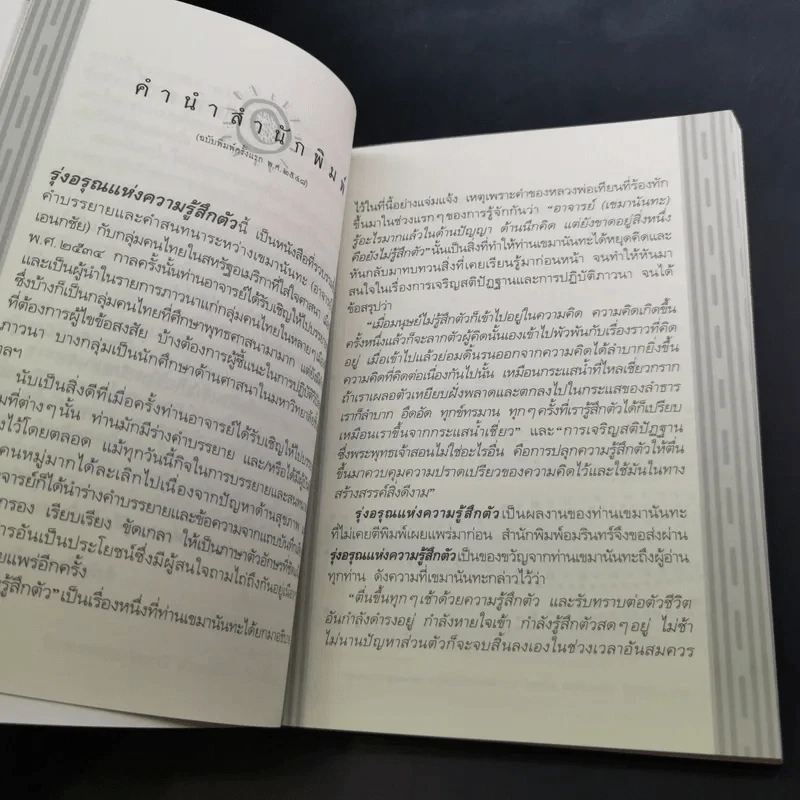 คำนำสำนักพิมพ์
(ฉบับพิมพ์ครั้งแรก พ.ศ.๒๕๔๗)
รุ่งอรุณแห่งความรู้สึกตัวนี้ เป็นหนังสือที่รวบรวม
คำบรรยายและคำสนทนาระหว่างเขมานันทะ
เอนกชัย) กับกลุ่มคนไทยในสหรัฐอเมริกาที่ใส่ใจศาสนา
พ.ศ.๒๕๓๔ กาลครั้งนั้นท่านอาจารย์ได้รับเชิญให้ไป
และเป็นผู้นำในรายการภาวนาแก่กลุ่มคนไทยในหลายๆ
ซึ่งบ้างก็เป็นกลุ่มคนไทยที่ศึกษาพุทธศาสนามามาก
ที่ต้องการผู้ไขข้อสงสัย บ้างต้องการผู้ชี้แนะในการปฏิบัติ
ภาวนา บางกลุ่มเป็นนักศึกษาด้านศาสนาในมหาวิทยาลัย
ลฯ
นับเป็นสิ่งดีที่เมื่อครั้งท่านอาจารย์ได้รับเชิญให้ไป
มที่ต่างๆนั้น ท่านมักมีร่างคำบรรยาย และ/หรือได้มี
งไว้โดยตลอด แม้ทุกวันนี้กิจในการบรรยายและสนทนา
คนหมู่มากได้ละเลิกไปเนื่องจากปัญหาด้านสุขภาพ
จารย์ก็ได้นำร่างคำบรรยายและข้อความจากแถบบันทึก
กรอง เรียบเรียง ขัดเกลา ให้เป็นภาษาตัวอักษรที่
การอันเป็นประโยชน์ซึ่งมีผู้สนใจถามไถ่ถึงกันอยู่
ยแพร่อีกครั้ง
รู้สึกตัว"เป็นเรื่องหนึ่งที่ท่านเขมานันทะได้ยกมา
ไว้ในที่นี้อย่างแจ่มแจ้ง เหตุเพราะคำของหลวงพ่อเทียนที่ร้องทัก
ขึ้นมาในช่วงแรกๆของการรู้จักกันว่า "อาจารย์ (เขมานันทะ)
รู้อะไรมากแล้วในด้านปัญญา ด้านนึกคิด แต่ยังขาดอยู่สิ่งหนึ่ง
คือยังไม่รู้สึกตัว"นั้นเป็นสิ่งที่ทำให้ท่านเขมานันทะได้หยุดคิดและ
หันกลับมาทบทวนสิ่งที่เคยเรียนรู้มาก่อนหน้า จนทำให้หันมา
สนใจในเรื่องการเจริญสติปัฏฐานและการปฏิบัติภาวนา จนได้
ข้อสรุปว่า
"เมื่อมนุษย์ไม่รู้สึกตัวก็เข้าไปอยู่ในความคิด ความคิดเกิดขึ้น
ครั้งหนึ่งแล้วก็จะลากตัวผู้คิดนั้นเองเข้าไปพัวพันกับเรื่องราวที่คิด
อยู่ เมื่อเข้าไปแล้วย่อมดิ้นรนออกจากความคิดได้ลำบากยิ่งขึ้น
ความคิดที่คิดต่อเนื่องกันไปนั้น เหมือนกระแสน้ำที่ไหลเชี่ยวกราก
ถ้าเราเผลอตัวเหยียบฝั่งพลาดและตกลงไปในกระแสของลำธาร
เราก็ลำบาก อึดอัด ทุกข์ทรมาน ทุกๆครั้งที่เรารู้สึกตัวได้ก็เปรียบ
เหมือนเราขึ้นจากกระแสน้ำเชี่ยว" และ"การเจริญสติปัฏฐาน
ซึ่งพระพุทธเจ้าสอนไม่ใช่อะไรอื่น คือการปลุกความรู้สึกตัวให้ตื่น
ขึ้นมาควบคุมความปราดเปรียวของความคิดไว้และใช้มันในทาง
สร้างสรรค์สิ่งดีงาม"
รุ่งอรุณแห่งความรู้สึกตัวเป็นผลงานของท่านเขมานันทะ
ที่ไม่เคยตีพิมพ์เผยแพร่มาก่อน สำนักพิมพ์อมรินทร์จึงขอส่งผ่าน
รุ่งอรุณแห่งความรู้สึกตัวเป็นของขวัญจากท่านเขมานันทะถึงผู้อ่าน
ทุกท่าน ดังความที่เขมานันทะกล่าวไว้ว่า
"ตื่นขึ้นทุกๆเช้าด้วยความรู้สึกตัว และรับทราบต่อตัวชีวิต
อันกำลังดำรงอยู่ กำลังหายใจเข้า กำลังรู้สึกตัวสดๆอยู่ ไม่ช้า
ไม่นานปัญหาส่วนตัวก็จะจบสิ้นลงเองในช่วงเวลาอันสมควร